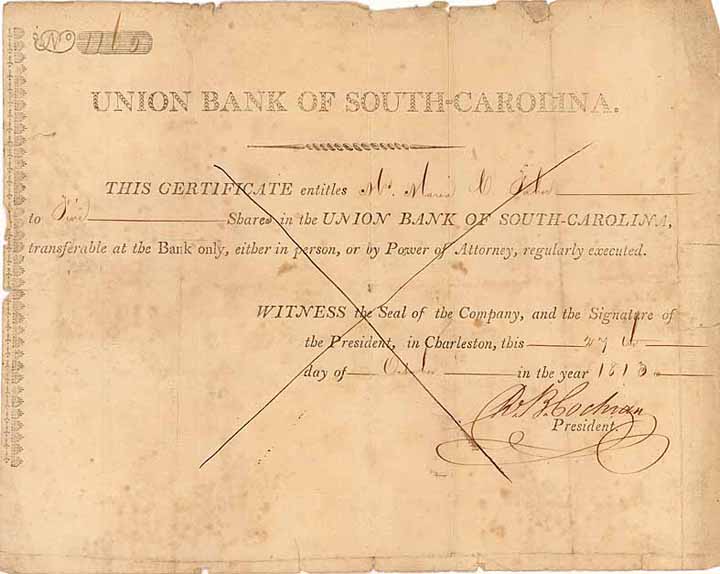 No
UNION BANK OF SOUTH-CAROLINA.
THIS CERTIFICATE entitles Mrs Maria C.
to Five Shares in the UNION BANK OF SOUTH-CAROLINA,
transferable at the Bank only, either in person, or by Power of Attorney, regularly executed.
WITNESS the Seal of the Company, and the Signature of
the President, in Charleston, this 27th
day of October in the year 1813
Cochran
President.